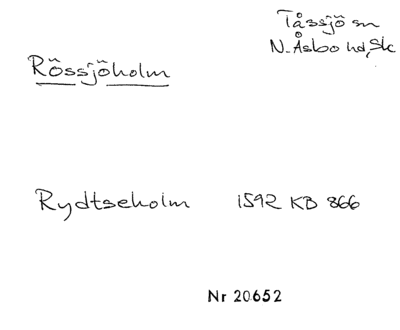 Tåssjö sn
N. Åsbo hd, Sk
Rössjöholm
Rydtseholm 1592 KB 866
Nr 20652